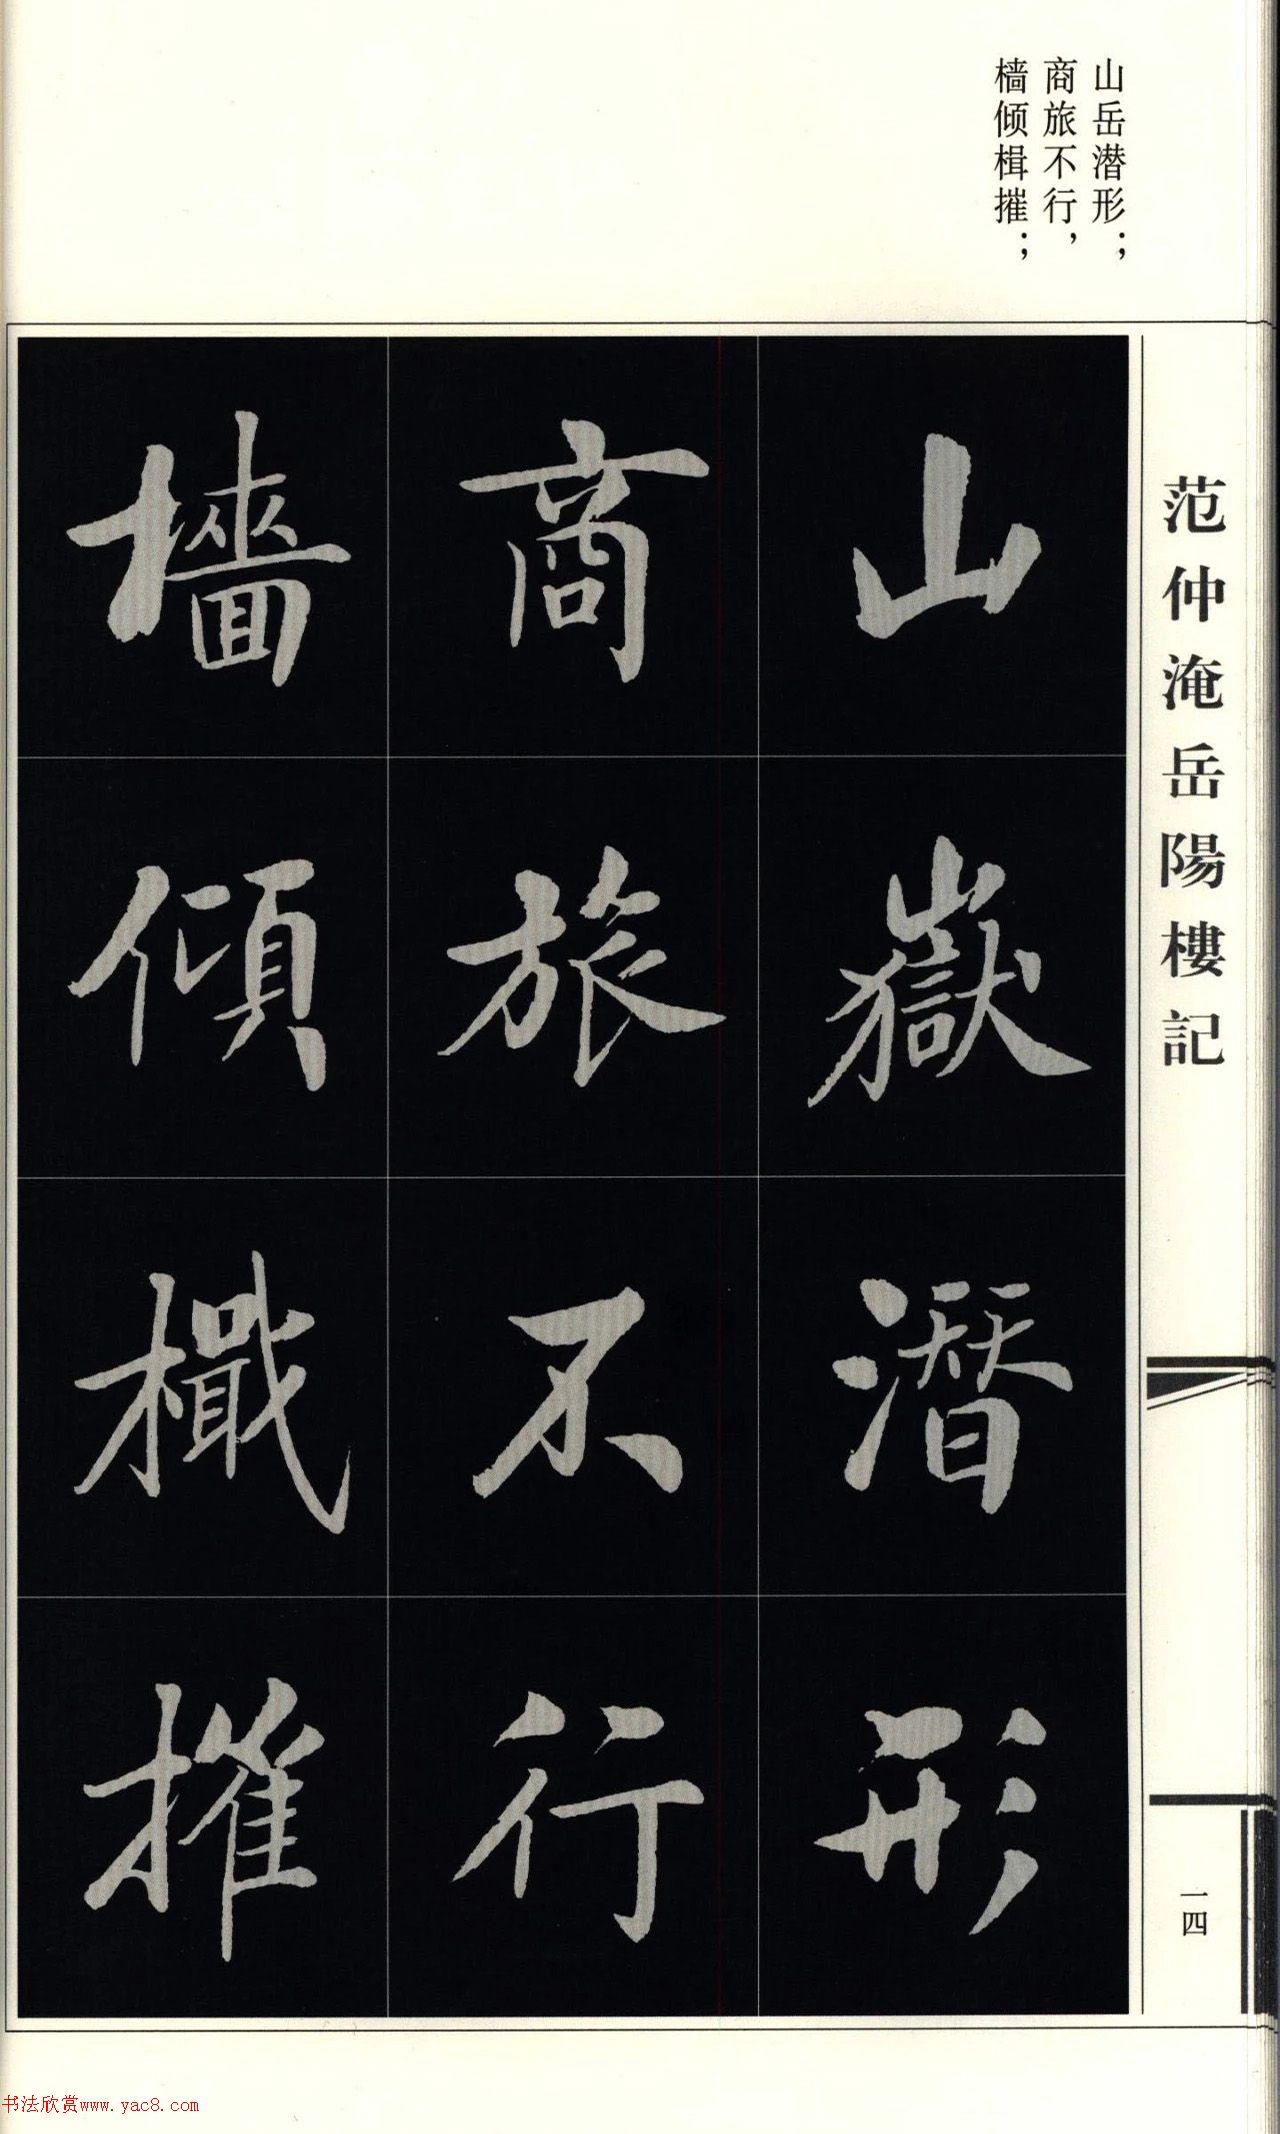 山岳潜形；
商旅不行，
樯倾楫摧；
范仲淹岳陽樓記
山嶽潛形
商旅不行
檣傾檝摧
一四
书法欣赏www.yac8.com